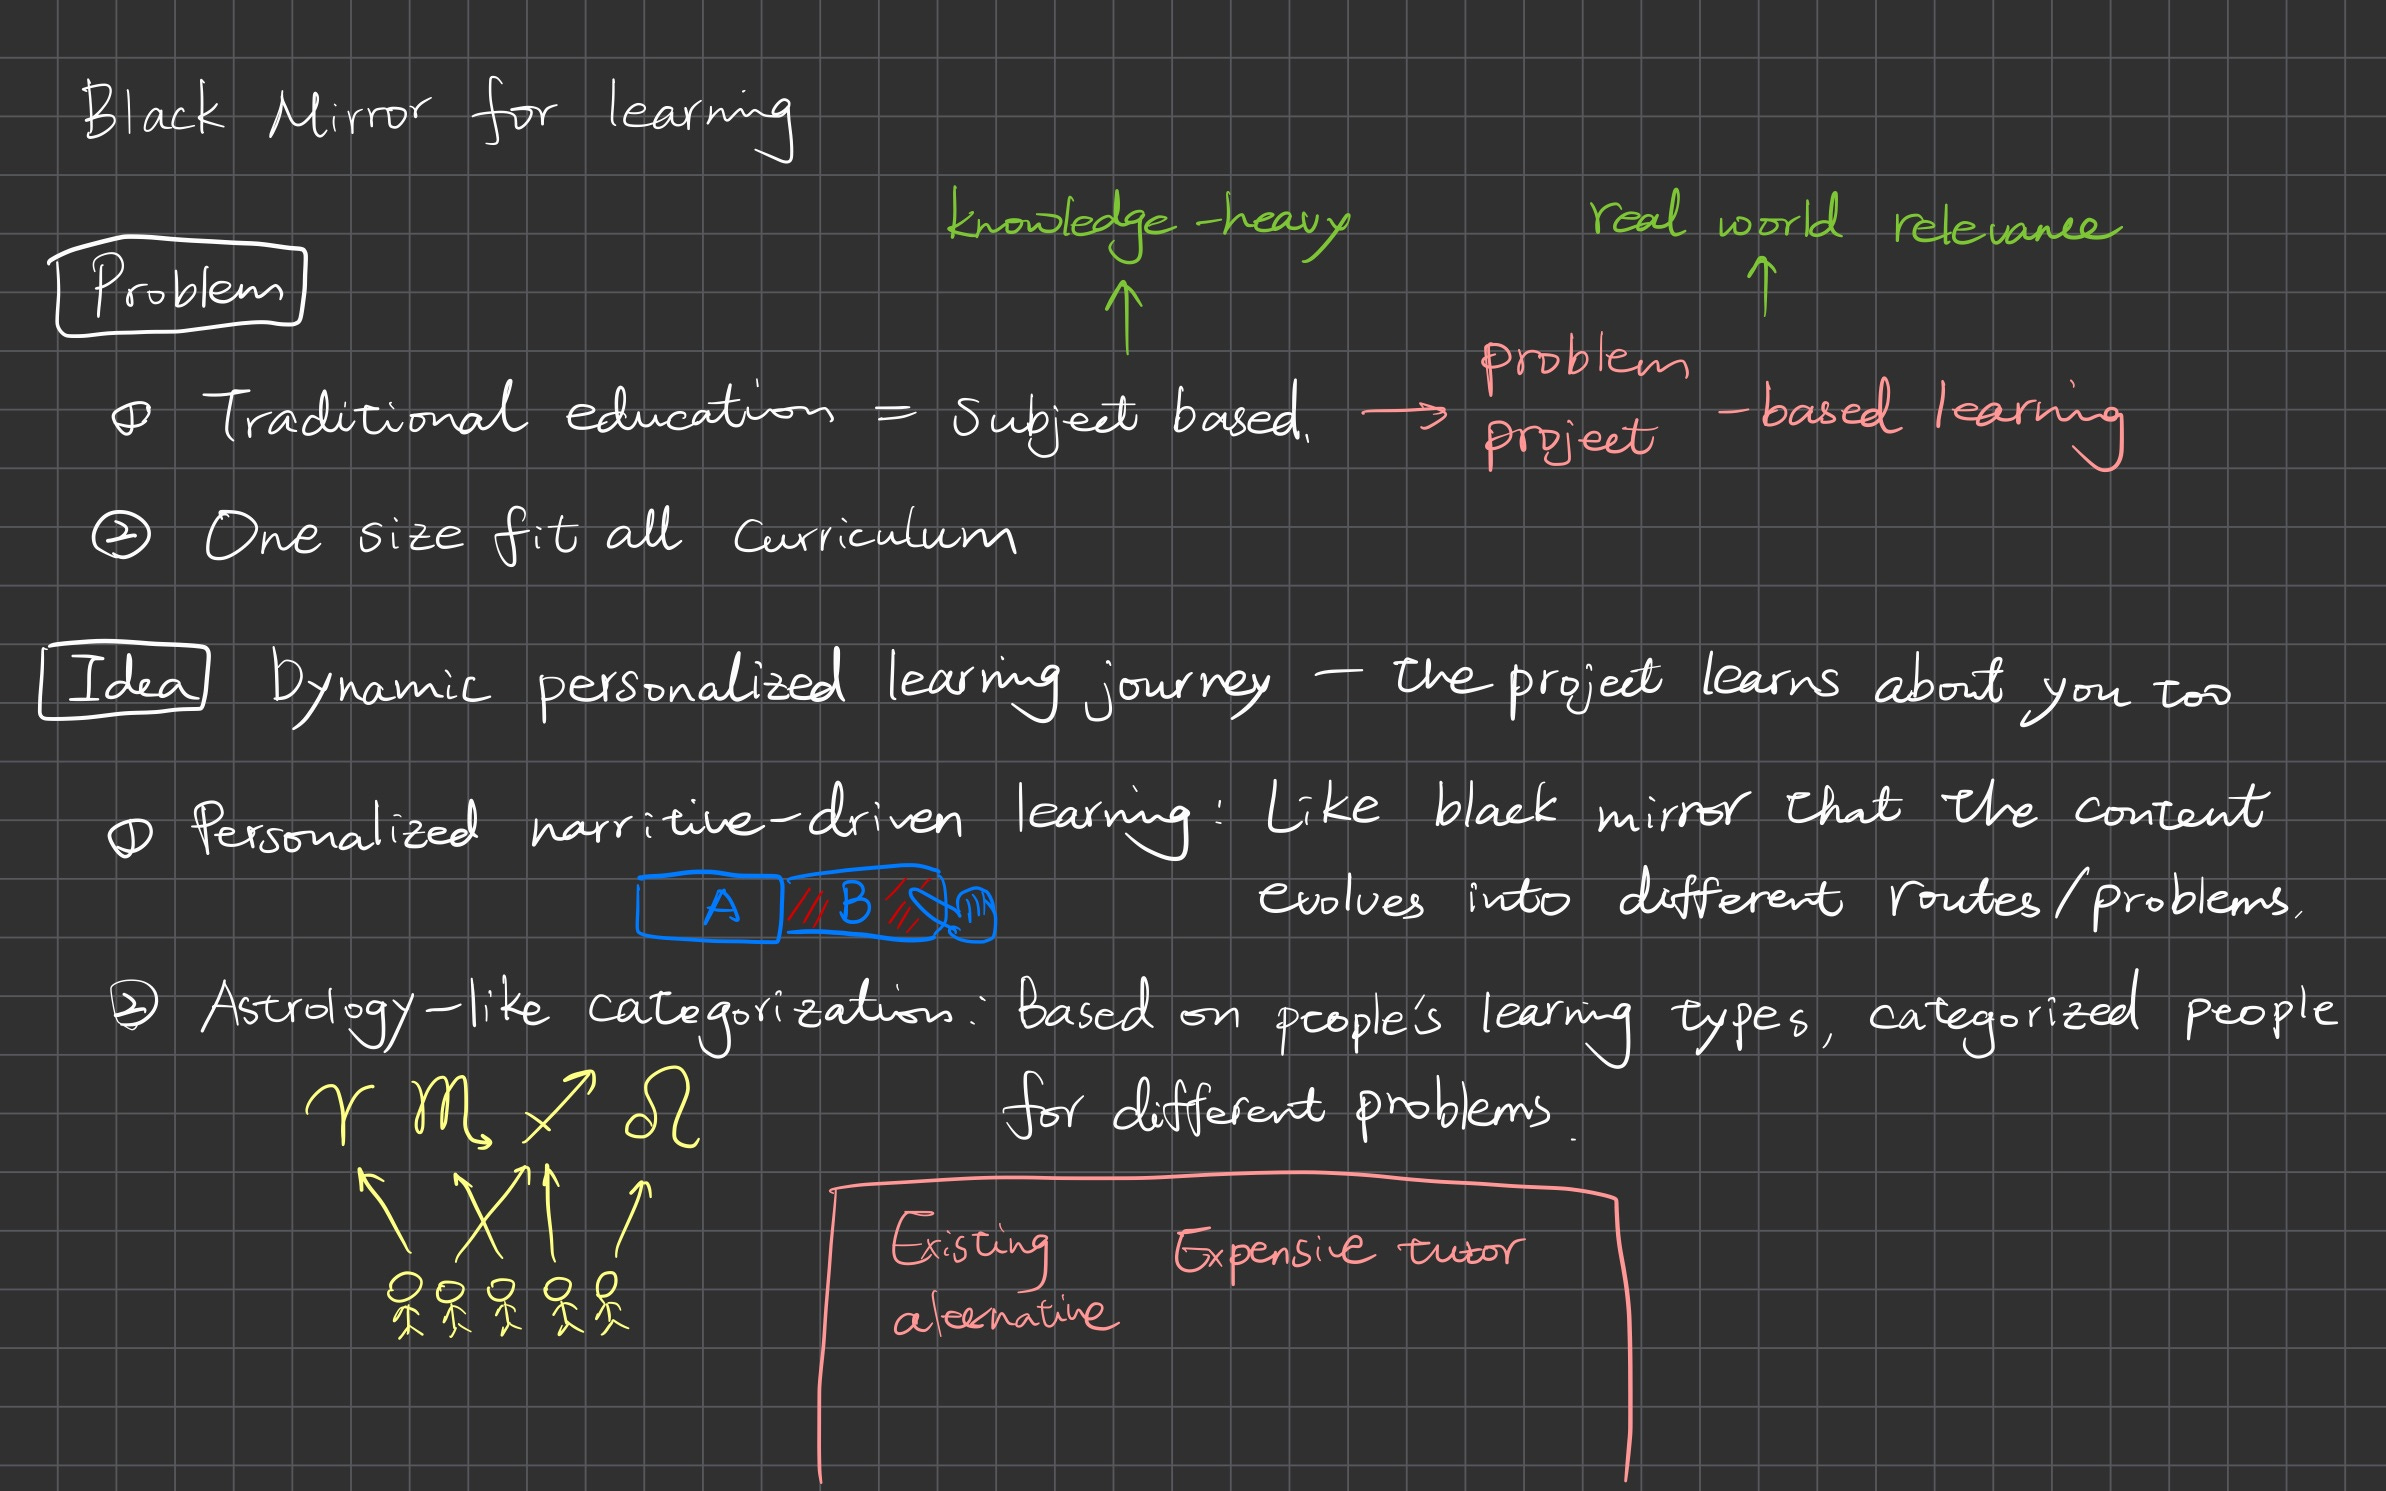 Black Mirror for learning
knowledge-heavy
real world relevance
Problem
↑
↑
① Traditional education = Subject based. → problem
project -based learning
② One size fit all curriculum
Idea Dynamic personalized learning journey - the project learns about you too
① Personalized narritive-driven learning: Like black mirror that the content
evolves into different routes/problems.
A B
② Astrology-like categorization: Based on people's learning types, categorized people
for different problems.
♈ ♏ ♐ ♌
Existing Expensive tutor
alternative